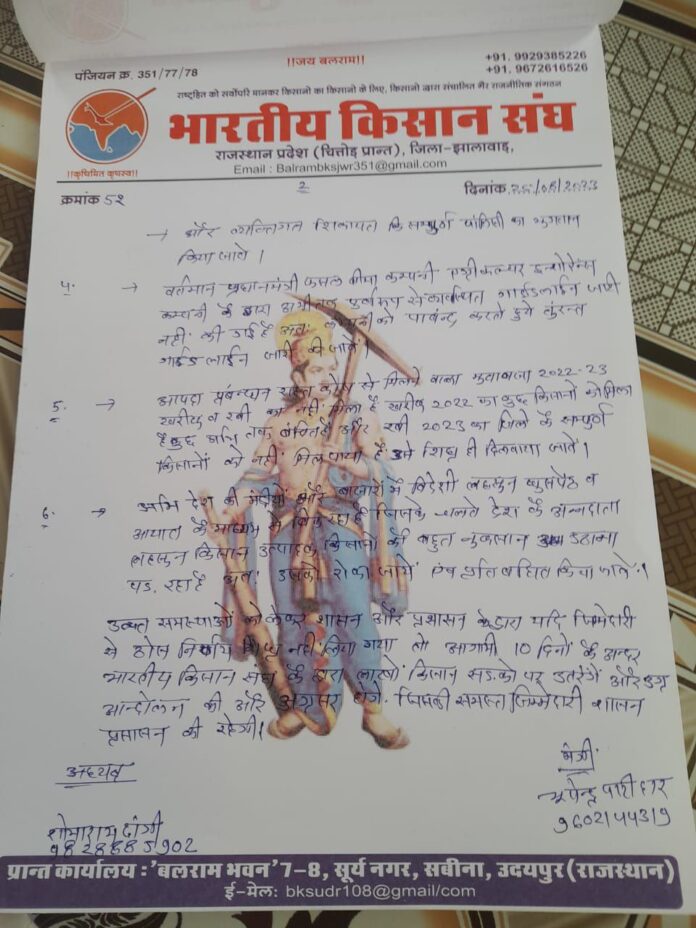 !!जय बलराम!!
पंजियन क्र. 351/77/78
+91. 9929385226
+91. 9672616526
राष्ट्रहित को सर्वोपरि मानकर किसानो का किसानो के लिए, किसानो द्वारा संचालित गैर राजनीतिक संगठन
भारतीय किसान संघ
राजस्थान प्रदेश (चित्तोड़ प्रान्त), जिला-झालावाड़,
Email : Balrambksjwr351@gmail.com
!!कृषिमित कृषस्व!!
क्रमांक 52
2
दिनांक
→ और व्यक्तिगत शिकायत कि सम्पूर्ण पॉलिसी का भुगतान
किया जावे ।
4. → वर्तमान प्रधानमंत्री फसल बीमा कम्पनी एग्रीकल्चर इन्शोरेन्स
कम्पनी के द्वारा अभी तक पूर्णरूप से गाईडलाईन जारी
नहीं की गई है अतः कम्पनी को पाबन्द करते हुये तुरन्त
गाईड लाईन जारी की जावे।
5. → आपदा प्रबन्धन राहत कोष से मिलने वाला मुआवजा 2022-23
खरीफ व रबी का नहीं मिला है खरीफ 2022 का कुछ किसानों को मिला
है कुछ अभी तक वंचित है और रबी 2023 का जिले के सम्पूर्ण
किसानों को नहीं मिल पाया है उसे शिघ्र ही दिलवाया जावे।
6. → अभि देश की मंडीयों और बाजारों में विदेशी लहसुन घुसपैठ व
आयात के माध्यम से बिक रहा है जिसके चलते देश के अन्नदाता
लहसुन किसान उत्पादक किसानों को बहुत नुकसान उठाना
पड़ रहा है अतः उसको रोका जायें एवं प्रतिबंधित किया जावे।
उक्त समस्याओं को लेकर शासन और प्रशासन के द्वारा यदि जिम्मेदारी
से ठोस निर्णय शिघ्र नहीं लिया गया तो आगामी 10 दिनों के अन्दर
भारतीय किसान संघ के द्वारा लाखों किसान सड़को पर उतरेंगें और उग्र
आन्दोलन की और अग्रसर होंगे. जिसकी समस्त जिम्मेदारी शासन
प्रशासन की रहेगी।
अध्यक्ष
मंत्री
भूपेन्द्र पाटीदार
9602144319
शोभाराम दांगी
9828885902
प्रान्त कार्यालय : 'बलराम भवन' 7-8, सूर्य नगर, सबीना, उदयपुर (राजस्थान)
ई-मेल: bksudr108@gmail/com